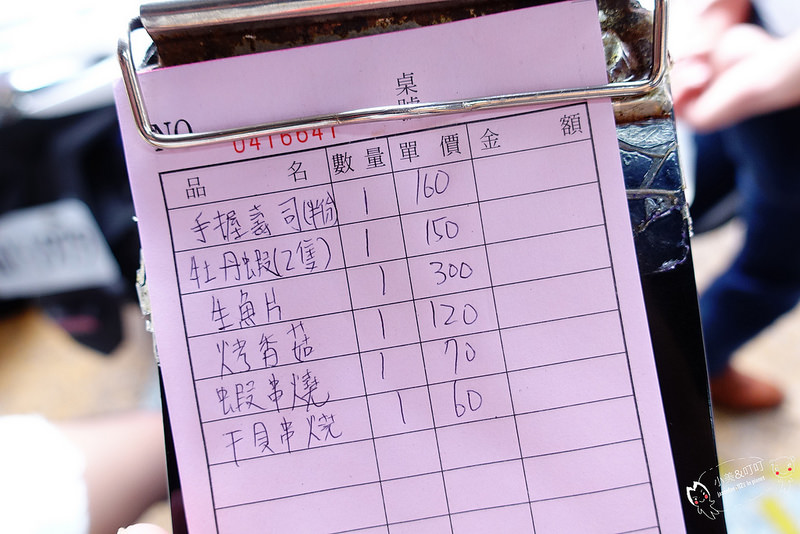 桌號
NO. 0416641
品名 數量 單價 金額
手握壽司(半份) 1 160
牡丹蝦(2隻) 1 150
生魚片 1 300
烤香菇 1 120
蝦串燒 1 70
干貝串燒 1 60
小美&叮叮